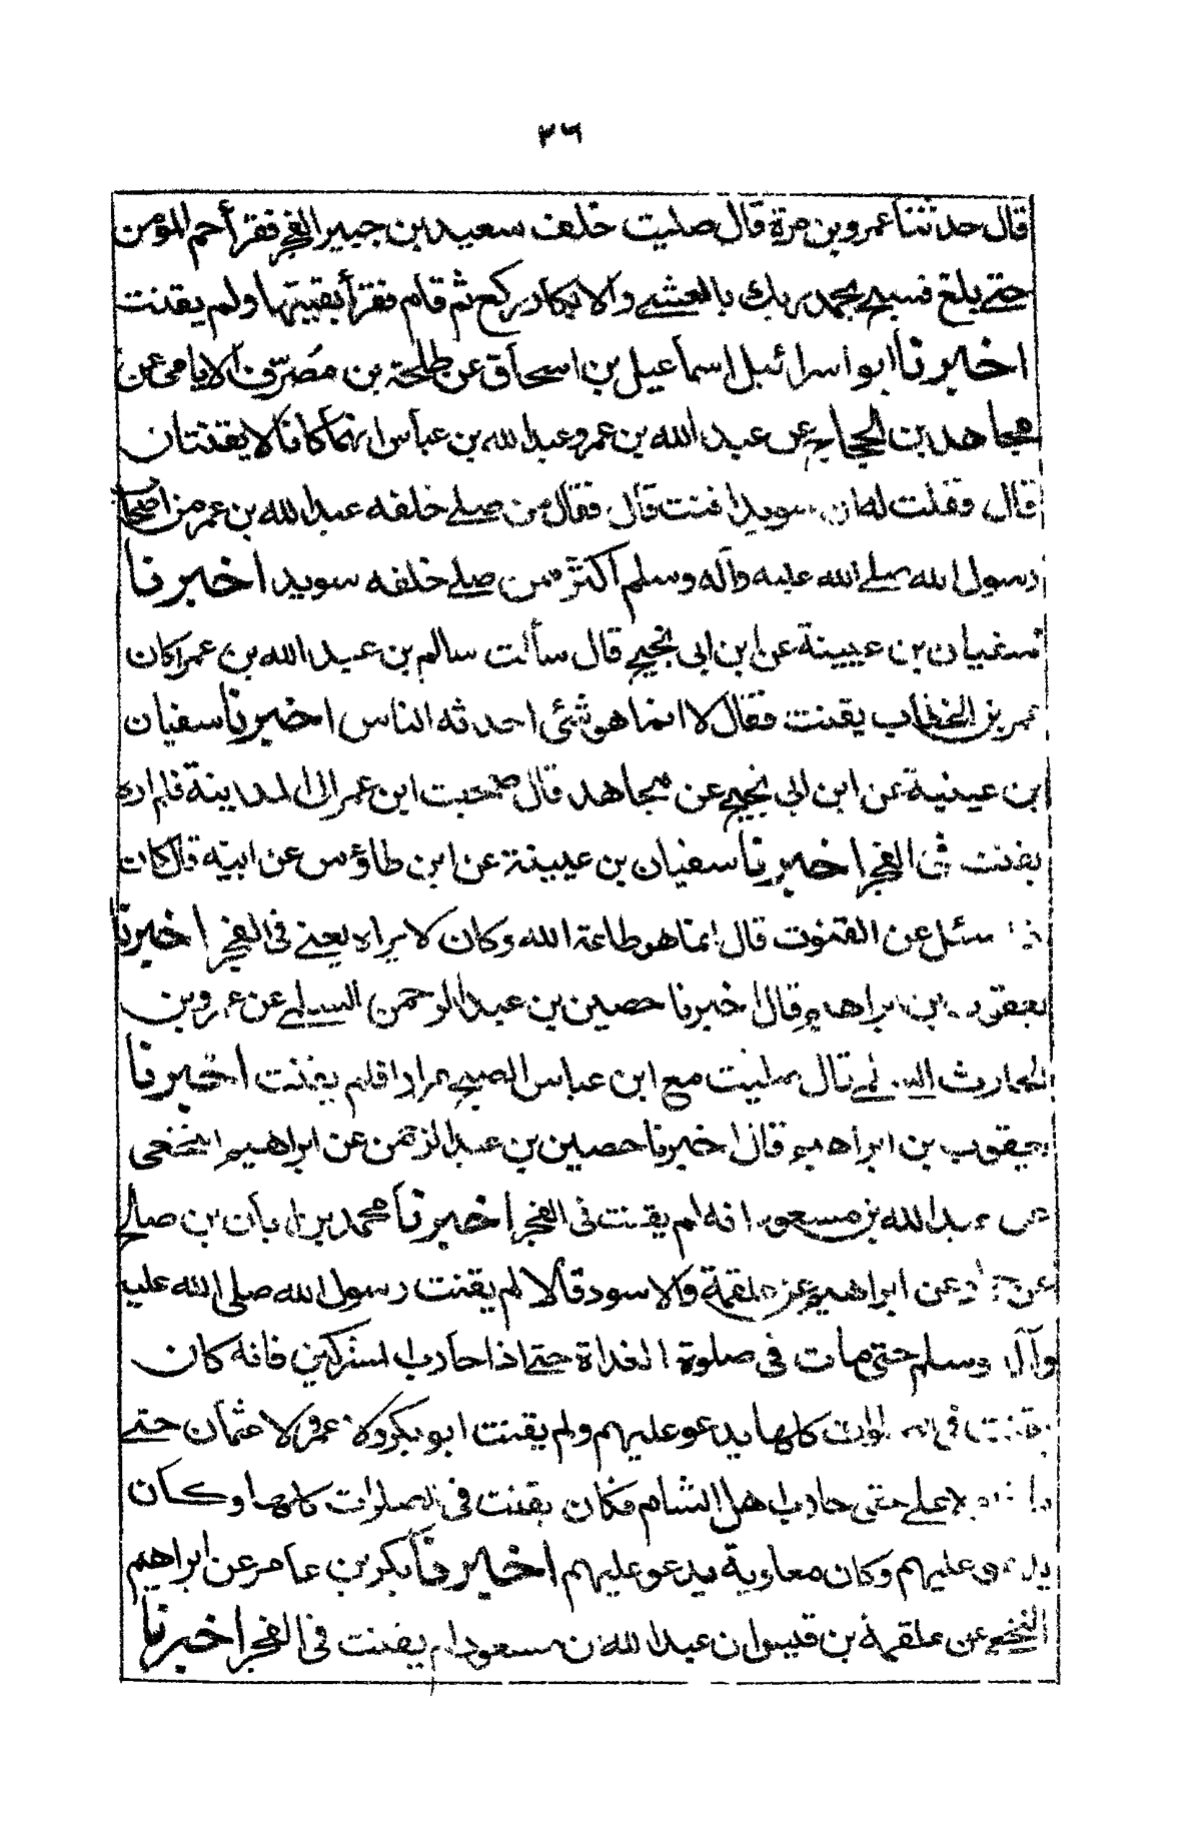 ٢٦
قال حدثنا عمرو بن مرة قال صليت خلف سعيد بن جبير الفجر فقرأ حم المؤمن
حتے بلغ فسبح بحمد ربك بالعشے والابكار ركع ثم قام فقرأ بقيتها ولم يقنت
اخبرنا ابو اسرائيل اسماعيل بن اسحاق عن طلحة بن مُصرّف الايامى عن
مجاهد بن الحجاج عن عبد الله بن عمر وعبد الله بن عباس انهما كانا لا يقنتان
قال فقلت له ان سويدا قنت قال فقال من صلے خلفه عبد الله بن عمر من اصحاب
رسول الله صلے الله عليه وآله وسلم أكثر ممن صلے خلفه سويد اخبرنا
سفيان بن عيينة عن ابن ابى نجيح قال سألت سالم بن عبد الله بن عمر اكان
عمر بن الخطاب يقنت فقال لا انما هو شئى احدثه الناس اخبرنا سفيان
ابن عيينة عن ابن ابى نجيح عن مجاهد قال صحبت ابن عمر الى المدينة فلم اره
يقنت فى الفجر اخبرنا سفيان بن عيينة عن ابن طاؤس عن ابيه قال كان
اذا سئل عن القنوت قال انما هو طاعة الله وكان لا يراه يعنے فى الفجر اخبرنا
يعقوب بن ابراهيم قال اخبرنا حصين بن عبد الرحمن السلمے عن عمرو بن
الحارث السلمے قال صليت مع ابن عباس الصبح مرارا فلم يقنت اخبرنا
يعقوب بن ابراهيم قال اخبرنا حصين بن عبد الرحمن عن ابراهيم النخعى
عن عبد الله بن مسعود انه لم يقنت فى الفجر اخبرنا محمد بن ابان بن صالح
عن حماد عن ابراهيم عن علقمة والاسود قالا لم يقنت رسول الله صلى الله عليه
وآله وسلم حتى مات فى صلوة الغداة حتے اذا حارب المشركين فانه كان
يقنت فى الصلوات كلها يدعو عليهم ولم يقنت ابو بكر ولا عمر ولا عثمان حتے
ولا علے حتى حارب اهل الشام فكان يقنت فى الصلوات كلها وكان
يدعو عليهم وكان معاوية يدعو عليهم اخبرنا بكر بن عامر عن ابراهيم
النخعے عن علقمة بن قيس ان عبد الله بن مسعود لم يقنت فى الفجر اخبرنا